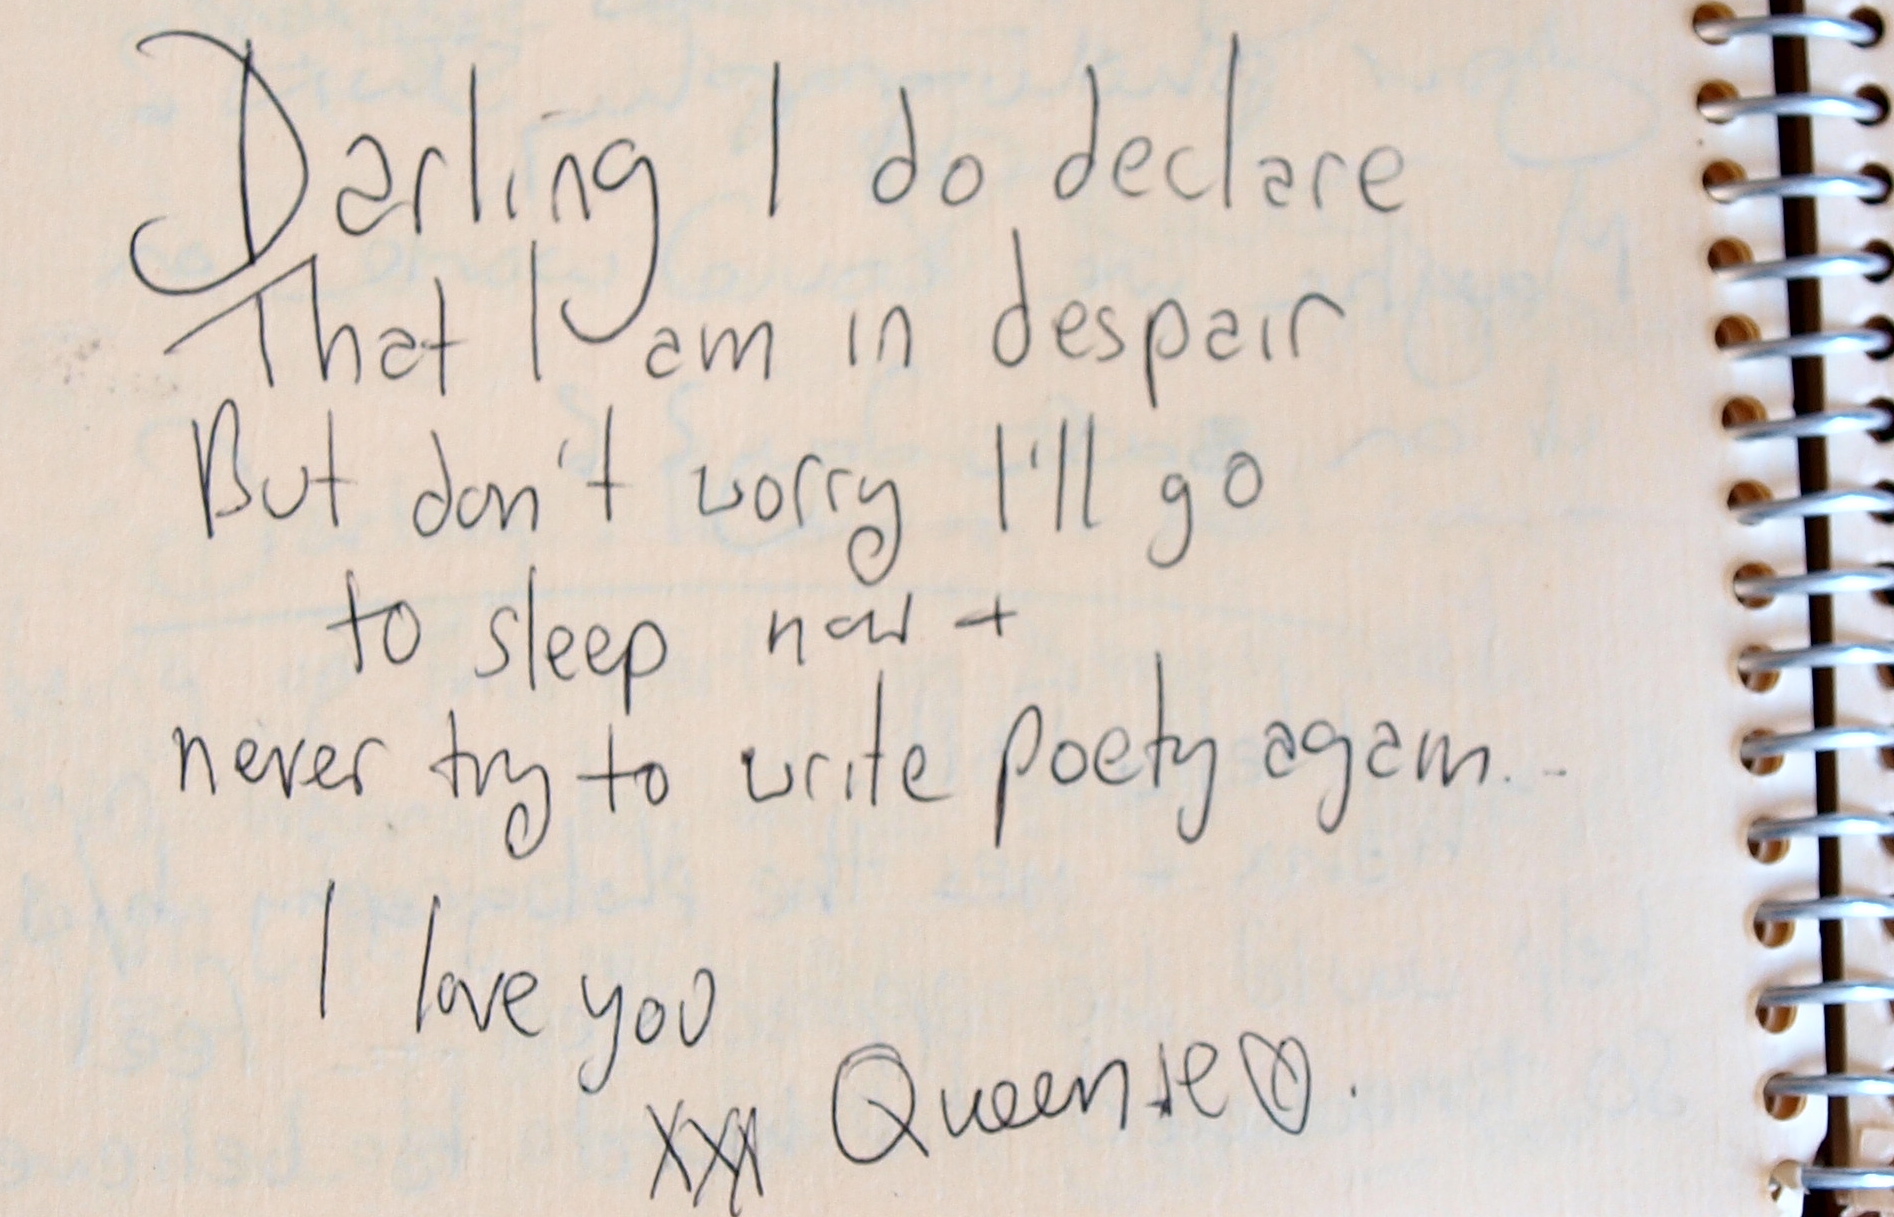 Darling I do declare
That I am in despair
But don't worry I'll go
to sleep now +
never try to write poety again...
I love you
xxx Queenie♡.